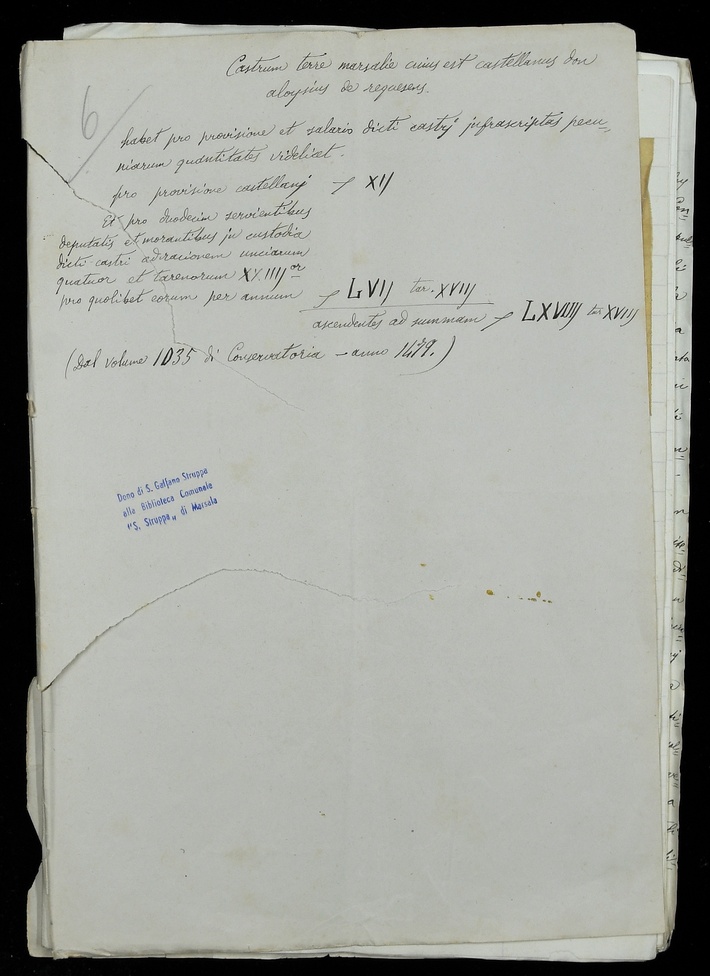 6
Castrum terre marsalie cuius est castellanus don
aloysius de requesens.
habet pro provisione et salario dicti castrj jnfrascriptas pecu„
niarum quantitates videlicet.
pro provisione castellanj — XIJ
Et pro duodecim servientibus
deputatis et morantibus jn custodia
dicti castri ad racionem unciarum
quatuor et tarenorum XVIIIJ or
pro quolibet eorum per annum LVIJ tar. XVIIJ
ascendentes ad summam LXVIIIJ tar XVIIJ
(Dal volume 1035 di Conservatoria – anno 1479.)
Dono di S. Galfano Struppa
alla Biblioteca Comunale
"S. Struppa„ di Marsala